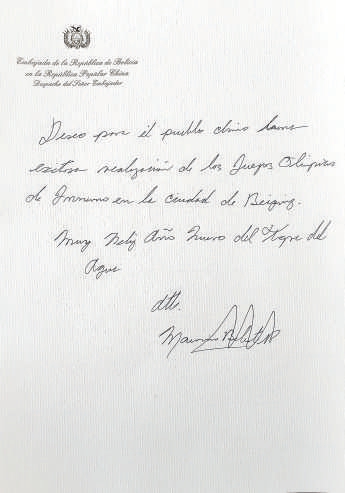 Embajada de la República de Bolivia
en la República Popular China
Despacho del Señor Embajador
Deseo para el pueblo chino
exitosa realización de los Juegos Olímpicos
de Invierno en la ciudad de Beijing.
Muy Feliz Año Nuevo del Tigre del
Agua
Att.